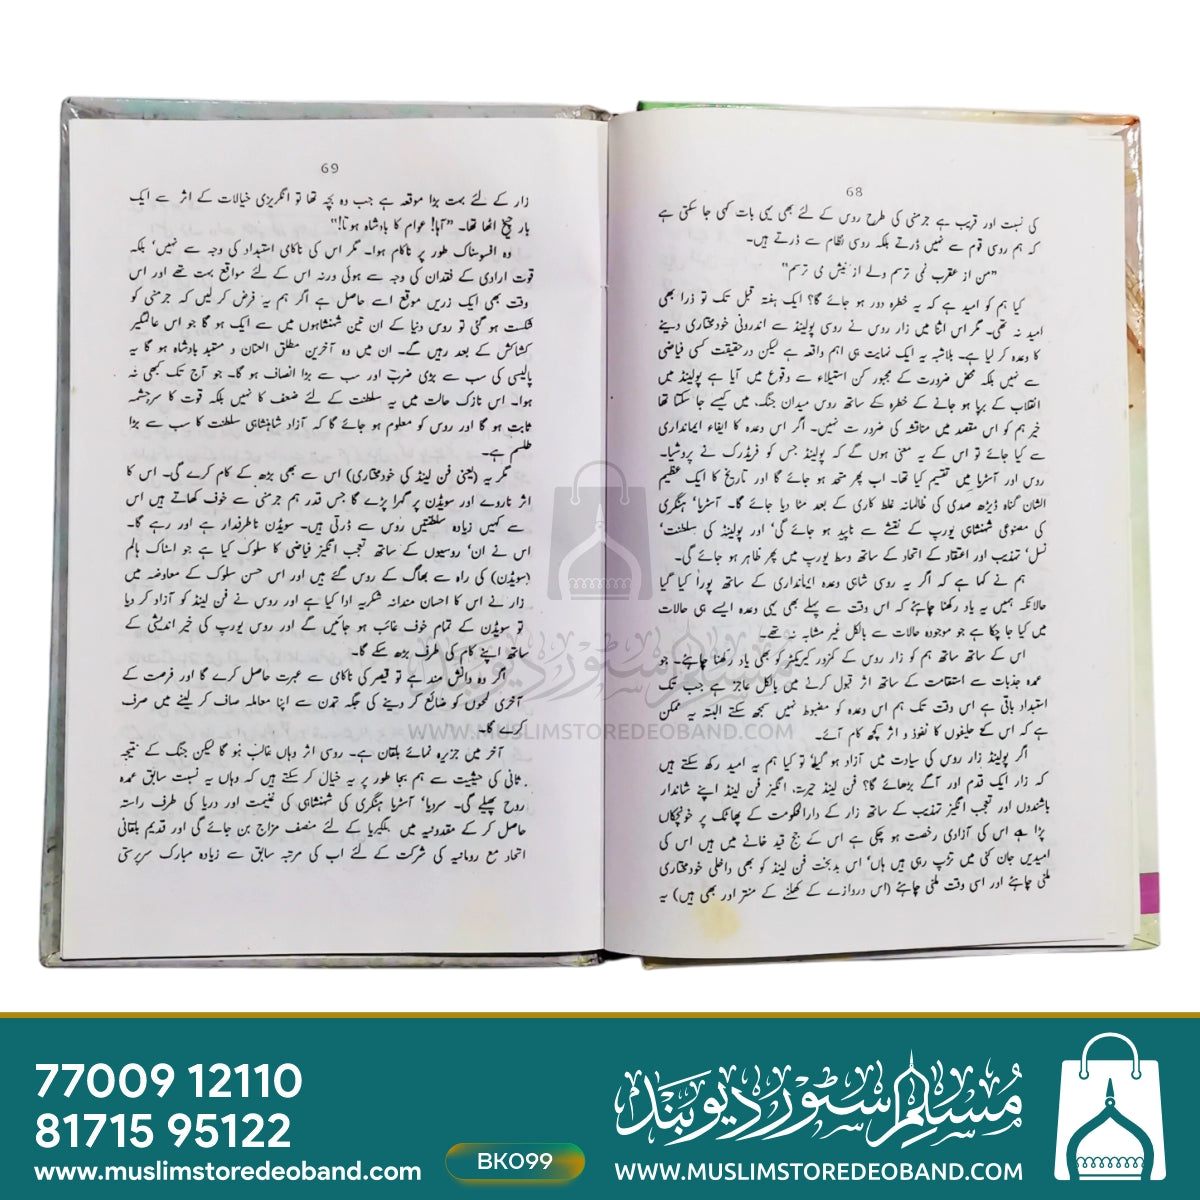 68
کی نسبت اور قریب ہے جرمنی کی طرح روس کے لئے بھی یہی بات کہی جا سکتی ہے
کہ ہم روسی قوم سے نہیں ڈرتے بلکہ روسی نظام سے ڈرتے ہیں۔
"من از عقرب نمی ترسم ولے از نیش می ترسم"
کیا ہم کو امید ہے کہ یہ خطرہ دور ہو جائے گا؟ ایک ہفتہ قبل تک تو ذرا بھی
امید نہ تھی۔ مگر اس اثنا میں زار روس نے روسی پولینڈ سے اندرونی خودمختاری دینے
کا وعدہ کر لیا ہے۔ بلاشبہ یہ ایک نہایت ہی اہم واقعہ ہے لیکن درحقیقت کسی فیاضی
سے نہیں بلکہ محض ضرورت کے مجبور کن استیلاء سے وقوع میں آیا ہے پولینڈ میں
انقلاب کے برپا ہو جانے کے خطرہ کے ساتھ روس میدان جنگ، میں کیسے جا سکتا تھا
خیر ہم کو اس مقصد میں مناقشہ کی ضرورت نہیں۔ اگر اس وعدہ کا ایفاء ایمانداری
سے کیا جائے تو اس کے یہ معنی ہوں گے کہ پولینڈ جس کو فریڈرک نے پروشیا۔
روس اور آسٹریا میں تقسیم کیا تھا۔ اب پھر متحد ہو جائے گا اور تاریخ کا ایک عظیم
الشان گناہ ڈیڑھ صدی کی ظالمانہ غلط کاری کے بعد مٹا دیا جائے گا۔ آسٹریا' ہنگری
کی مصنوعی شہنشاہی یورپ کے نقشے سے ناپید ہو جائے گی' اور پولینڈ کی سلطنت'
نسل' تہذیب اور اعتقاد کے اتحاد کے ساتھ وسط یورپ میں پھر ظاہر ہو جائے گی۔
ہم نے کہا ہے کہ اگر یہ روسی شاہی وعدہ ایمانداری کے ساتھ پورا کیا گیا
حالانکہ ہمیں یہ یاد رکھنا چاہئے کہ اس وقت سے پہلے بھی یہی وعدہ ایسے ہی حالات
میں کیا جا چکا ہے جو موجودہ حالات سے بالکل غیر مشابہ نہ تھے۔
اس کے ساتھ ساتھ ہم کو زار روس کے کمزور کیریکٹر کو بھی یاد رکھنا چاہئے۔ جو
عمدہ جذبات سے استقامت کے ساتھ اثر قبول کرنے میں بالکل عاجز ہے جب تک
استبداد باقی ہے اس وقت تک ہم اس وعدہ کو مضبوط نہیں سمجھ سکتے البتہ یہ ممکن
ہے کہ اس کے حلیفوں کا نفوذ و اثر کچھ کام آئے۔
اگر پولینڈ زار روس کی سیادت میں آزاد ہو گیا' تو کیا ہم یہ امید رکھ سکتے ہیں
کہ زار ایک قدم اور آگے بڑھائے گا؟ فن لینڈ حیرت، انگیز فن لینڈ اپنے شاندار
باشندوں اور تعجب انگیز تہذیب کے ساتھ زار کے دارالحکومت کے پھاٹک پر خونچکاں
پڑا ہے اس کی آزادی رخصت ہو چکی ہے اس کے جج قید خانے میں ہیں اس کی
امیدیں جان کنی میں تڑپ رہی ہیں ہاں' اس بدبخت فن لینڈ کو بھی داخلی خودمختاری
ملنی چاہئے اور اسی وقت ملنی چاہئے (اس دروازے کے کھلنے کے منتر اور بھی ہیں) یہ
69
زار کے لئے بہت بڑا موقعہ ہے جب وہ بچہ تھا تو انگریزی خیالات کے اثر سے ایک
بار چیخ اٹھا تھا۔ "آہا! عوام کا بادشاہ ہونا!"
وہ افسوسناک طور پر ناکام ہوا۔ مگر اس کی ناکامی استبداد کی وجہ سے نہیں' بلکہ
قوت ارادی کے فقدان کی وجہ سے ہوئی ورنہ اس کے لئے مواقع بہت تھے اور اس
وقت بھی ایک زریں موقع اسے حاصل ہے اگر ہم یہ فرض کر لیں کہ جرمنی کو
شکست ہو گئی تو روس دنیا کے ان تین شہنشاہوں میں سے ایک ہو گا جو اس عالمگیر
کشاکش کے بعد رہیں گے۔ ان میں وہ آخرین مطلق العنان و مستبد بادشاہ ہو گا یہ
پالیسی کی سب سے بڑی ضرب اور سب سے بڑا انصاف ہو گا۔ جو آج تک کبھی نہ
ہوا۔ اس نازک حالت میں یہ سلطنت کے لئے ضعف کا نہیں بلکہ قوت کا سرچشمہ
ثابت ہو گا اور روس کو معلوم ہو جائے گا کہ آزاد شاہنشاہی سلطنت کا سب سے بڑا
طلسم ہے۔
مگر یہ (یعنی فن لینڈ کی خودمختاری) اس سے بھی بڑھ کے کام کرے گی۔ اس کا
اثر ناروے اور سویڈن پر گہرا پڑے گا جس قدر ہم جرمنی سے خوف کھاتے ہیں اس
سے کہیں زیادہ سلطنتیں روس سے ڈرتی ہیں۔ سویڈن ناطرفدار ہے اور رہے گا۔
اس نے ان' روسیوں کے ساتھ تعجب انگیز فیاضی کا سلوک کیا ہے جو اسٹاک ہالم
(سویڈن) کی راہ سے بھاگ کے روس گئے ہیں اور اس حسن سلوک کے معاوضہ میں
زار نے اس کا احسان مندانہ شکریہ ادا کیا ہے اور روس نے فن لینڈ کو آزاد کر دیا
تو سویڈن کے تمام خوف غائب ہو جائیں گے اور روس یورپ کی خیر اندیشی کے
ساتھ اپنے کام کی طرف بڑھ سکے گا۔
اگر وہ دانش مند ہے تو قیصر کی ناکامی سے عبرت حاصل کرے گا اور فرصت کے
آخری لمحوں کو ضائع کر دینے کی جگہ تمدن سے اپنا معاملہ صاف کر لینے میں صرف
کرے گا۔
آخر میں جزیرہ نمائے بلقان ہے۔ روسی اثر وہاں غالب ہو گا لیکن جنگ کے نتیجہ
ثانی کی حیثیت سے ہم بجا طور پر یہ خیال کر سکتے ہیں کہ وہاں یہ نسبت سابق عمدہ
روح پھیلے گی۔ سرویا' آسٹریا ہنگری کی شہنشاہی کی غنیمت اور دریا کی طرف راستہ
حاصل کر کے مقدونیہ میں بلگیریا کے لئے منصف مزاج بن جائے گی اور قدیم بلقانی
اتحاد مع رومانیہ کی شرکت کے لئے اب کی مرتبہ سابق سے زیادہ مبارک سرپرستی
مسلم سٹور دیوبند
WWW.MUSLIMSTOREDEOBAND.COM
77009 12110
81715 95122
www.muslimstoredeoband.com
BK099
مسلم سٹور دیوبند
WWW.MUSLIMSTOREDEOBAND.COM